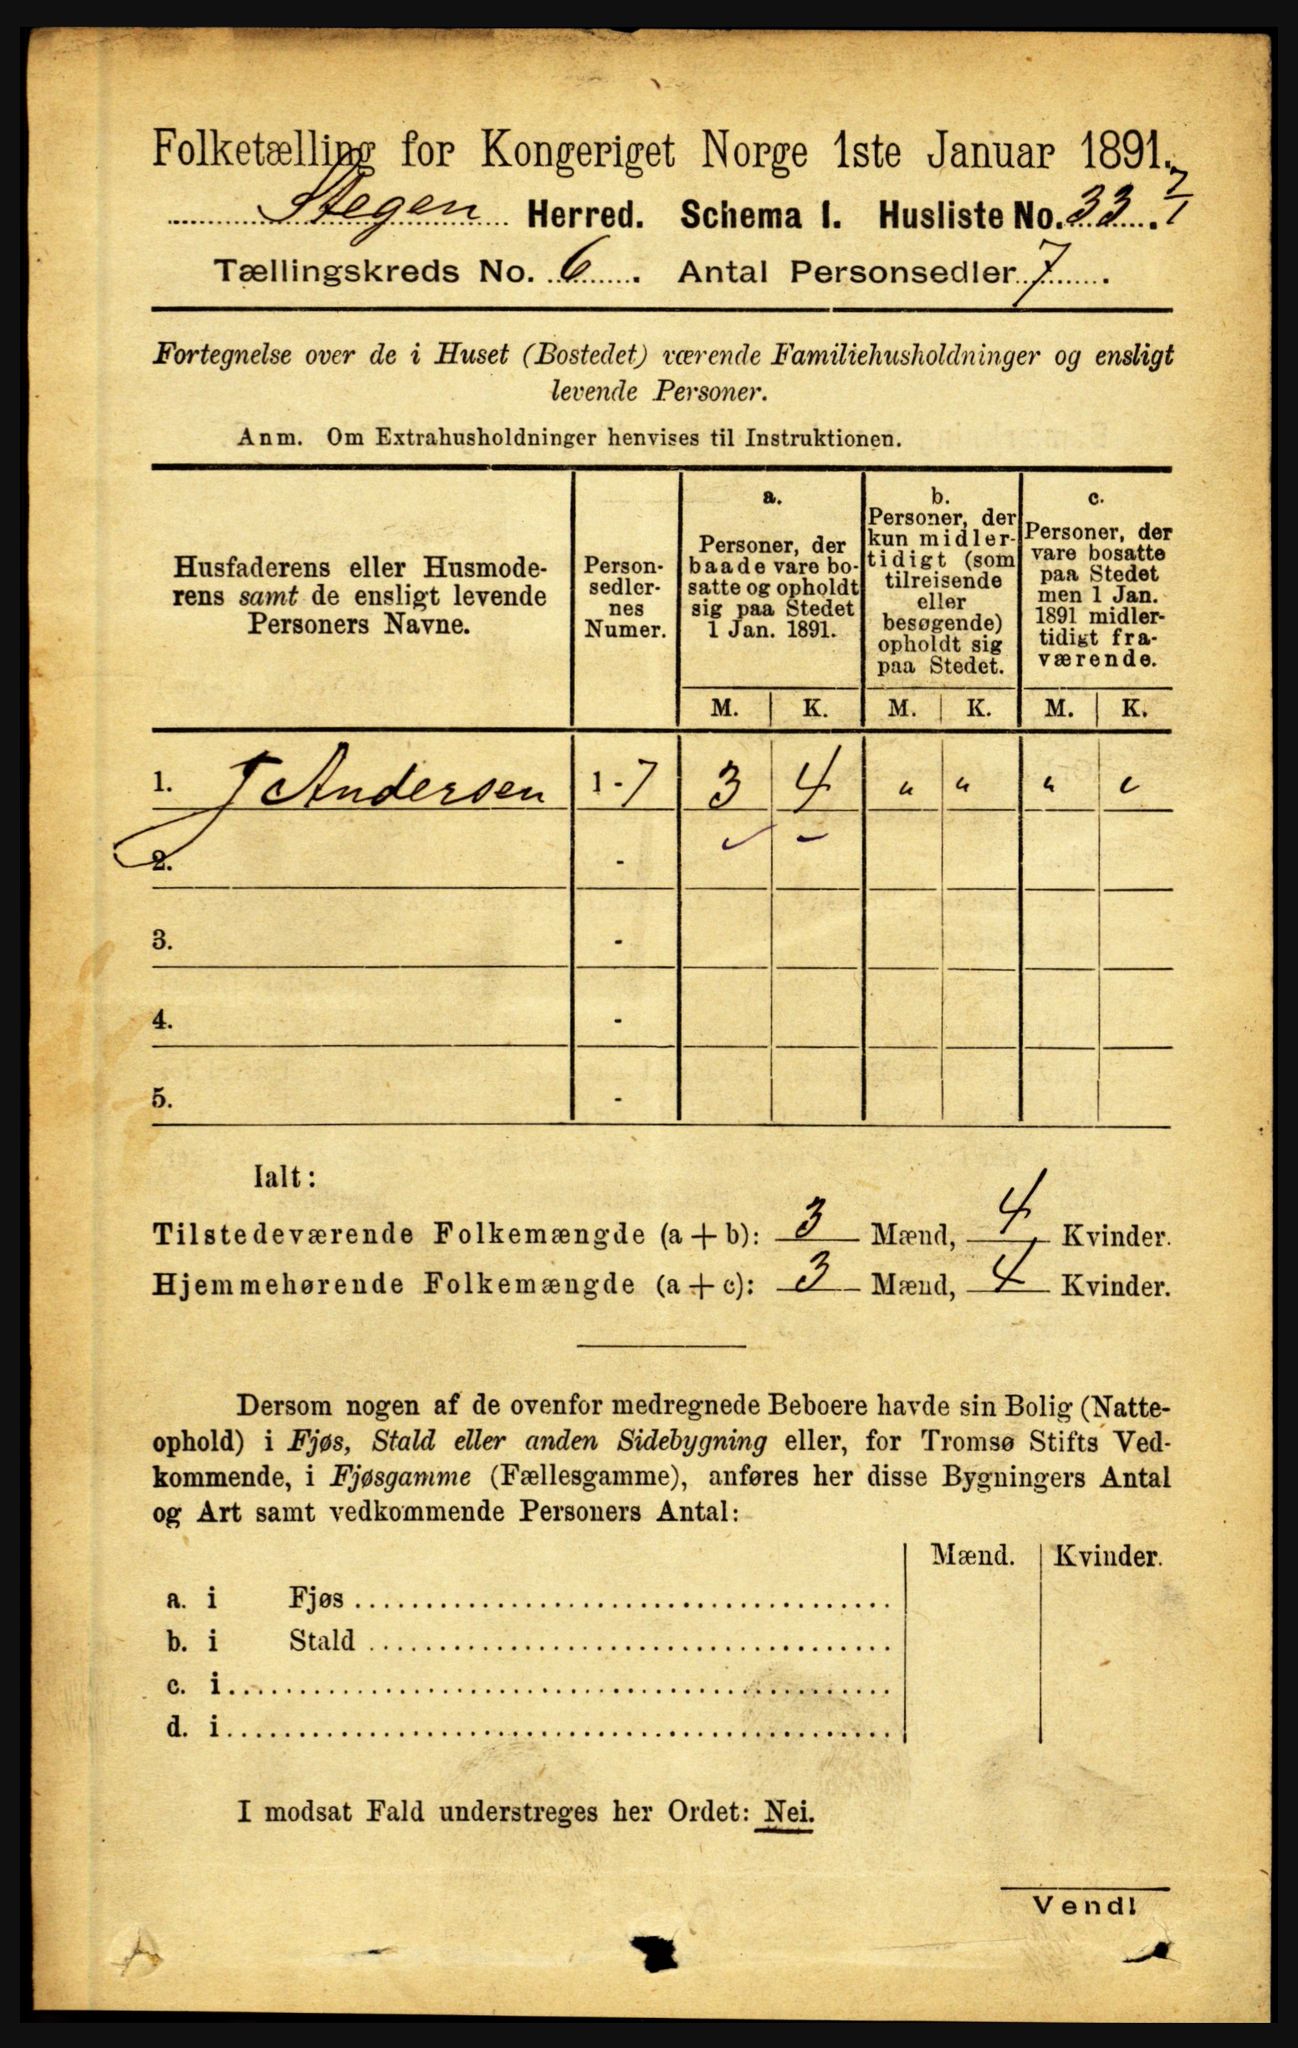 Folketælling for Kongeriget Norge 1ste Januar 1891.
Stegen Herred. Schema I. Husliste No. 33. 7/1
Tællingskreds No. 6. Antal Personsedler 7.
Fortegnelse over de i Huset (Bostedet) værende Familiehusholdninger og ensligt
levende Personer.
Anm. Om Extrahusholdninger henvises til Instruktionen.
Husfaderens eller Husmode-
rens samt de ensligt levende
Personers Navne.
Person-
sedler-
nes
Numer.
a.
Personer, der
baade vare bo-
satte og opholdt
sig paa Stedet
1 Jan. 1891.
b.
Personer, der
kun midler-
tidigt (som
tilreisende
eller
besøgende)
opholdt sig
paa Stedet.
c.
Personer, der
vare bosatte
paa Stedet
men 1 Jan.
1891 midler-
tidigt fra-
værende.
M. K. M. K. M. K.
1. J Andersen 1-7 3 4 " " " "
2. -
3. -
4. -
5. -
Ialt:
Tilstedeværende Folkemængde (a+b): 3 Mænd, 4 Kvinder.
Hjemmehørende Folkemængde (a+c): 3 Mænd, 4 Kvinder.
Dersom nogen af de ovenfor medregnede Beboere havde sin Bolig (Natte-
ophold) i Fjøs, Stald eller anden Sidebygning eller, for Tromsø Stifts Ved-
kommende, i Fjøsgamme (Fællesgamme), anføres her disse Bygningers Antal
og Art samt vedkommende Personers Antal:
Mænd. Kvinder.
a. i Fjøs
b. i Stald
c. i
d. i
I modsat Fald understreges her Ordet: Nei.
Vend!